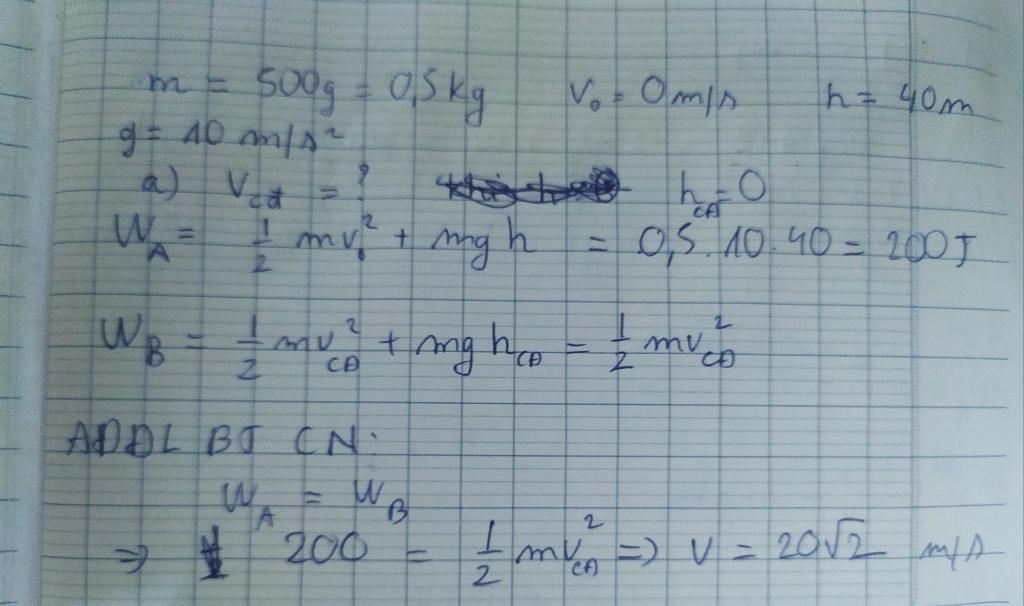 m = 500g = 0,5 kg v₀ = 0m/s h = 40m
g = 10 m/s²
a) v_cđ = ? h_CĐ = 0
W_A = 1/2 mv₀² + mgh = 0,5.10.40 = 200J
W_B = 1/2 mv_CĐ² + mgh_CĐ = 1/2 mv_CĐ²
ADĐL BT CN:
W_A = W_B
=> 200 = 1/2 mv_CĐ² => v = 20√2 m/s